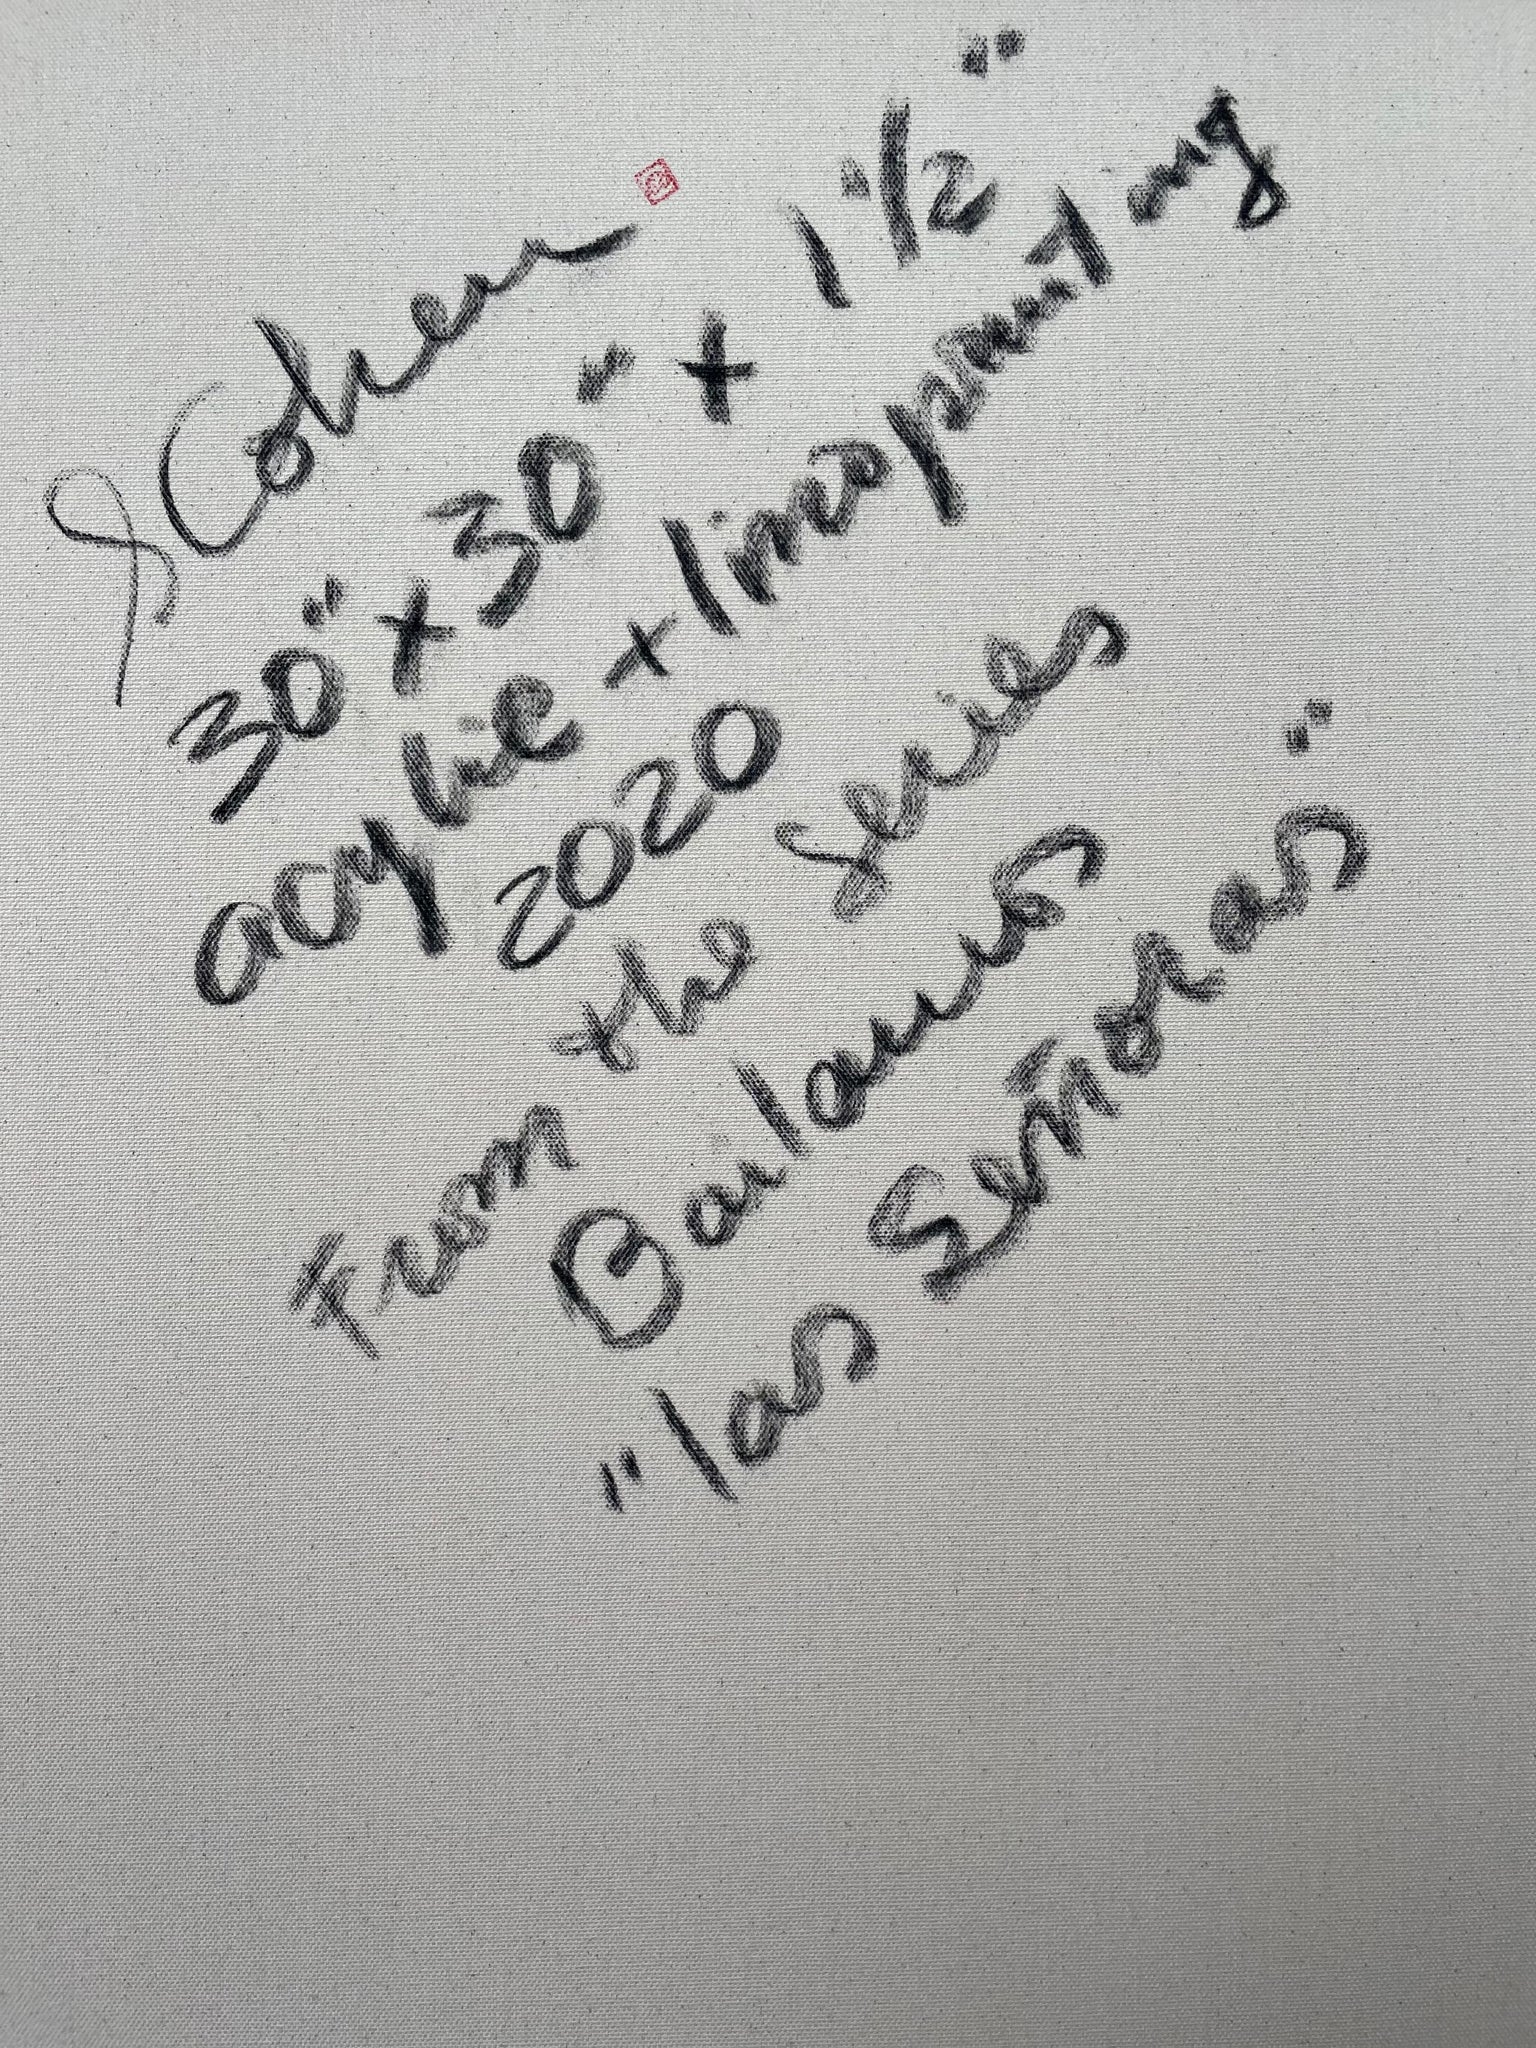 S Cohen
30" x 30" x 1 1/2"
acrylic + linoprinting
2020
From the series
Bailamos
"las Señoras"